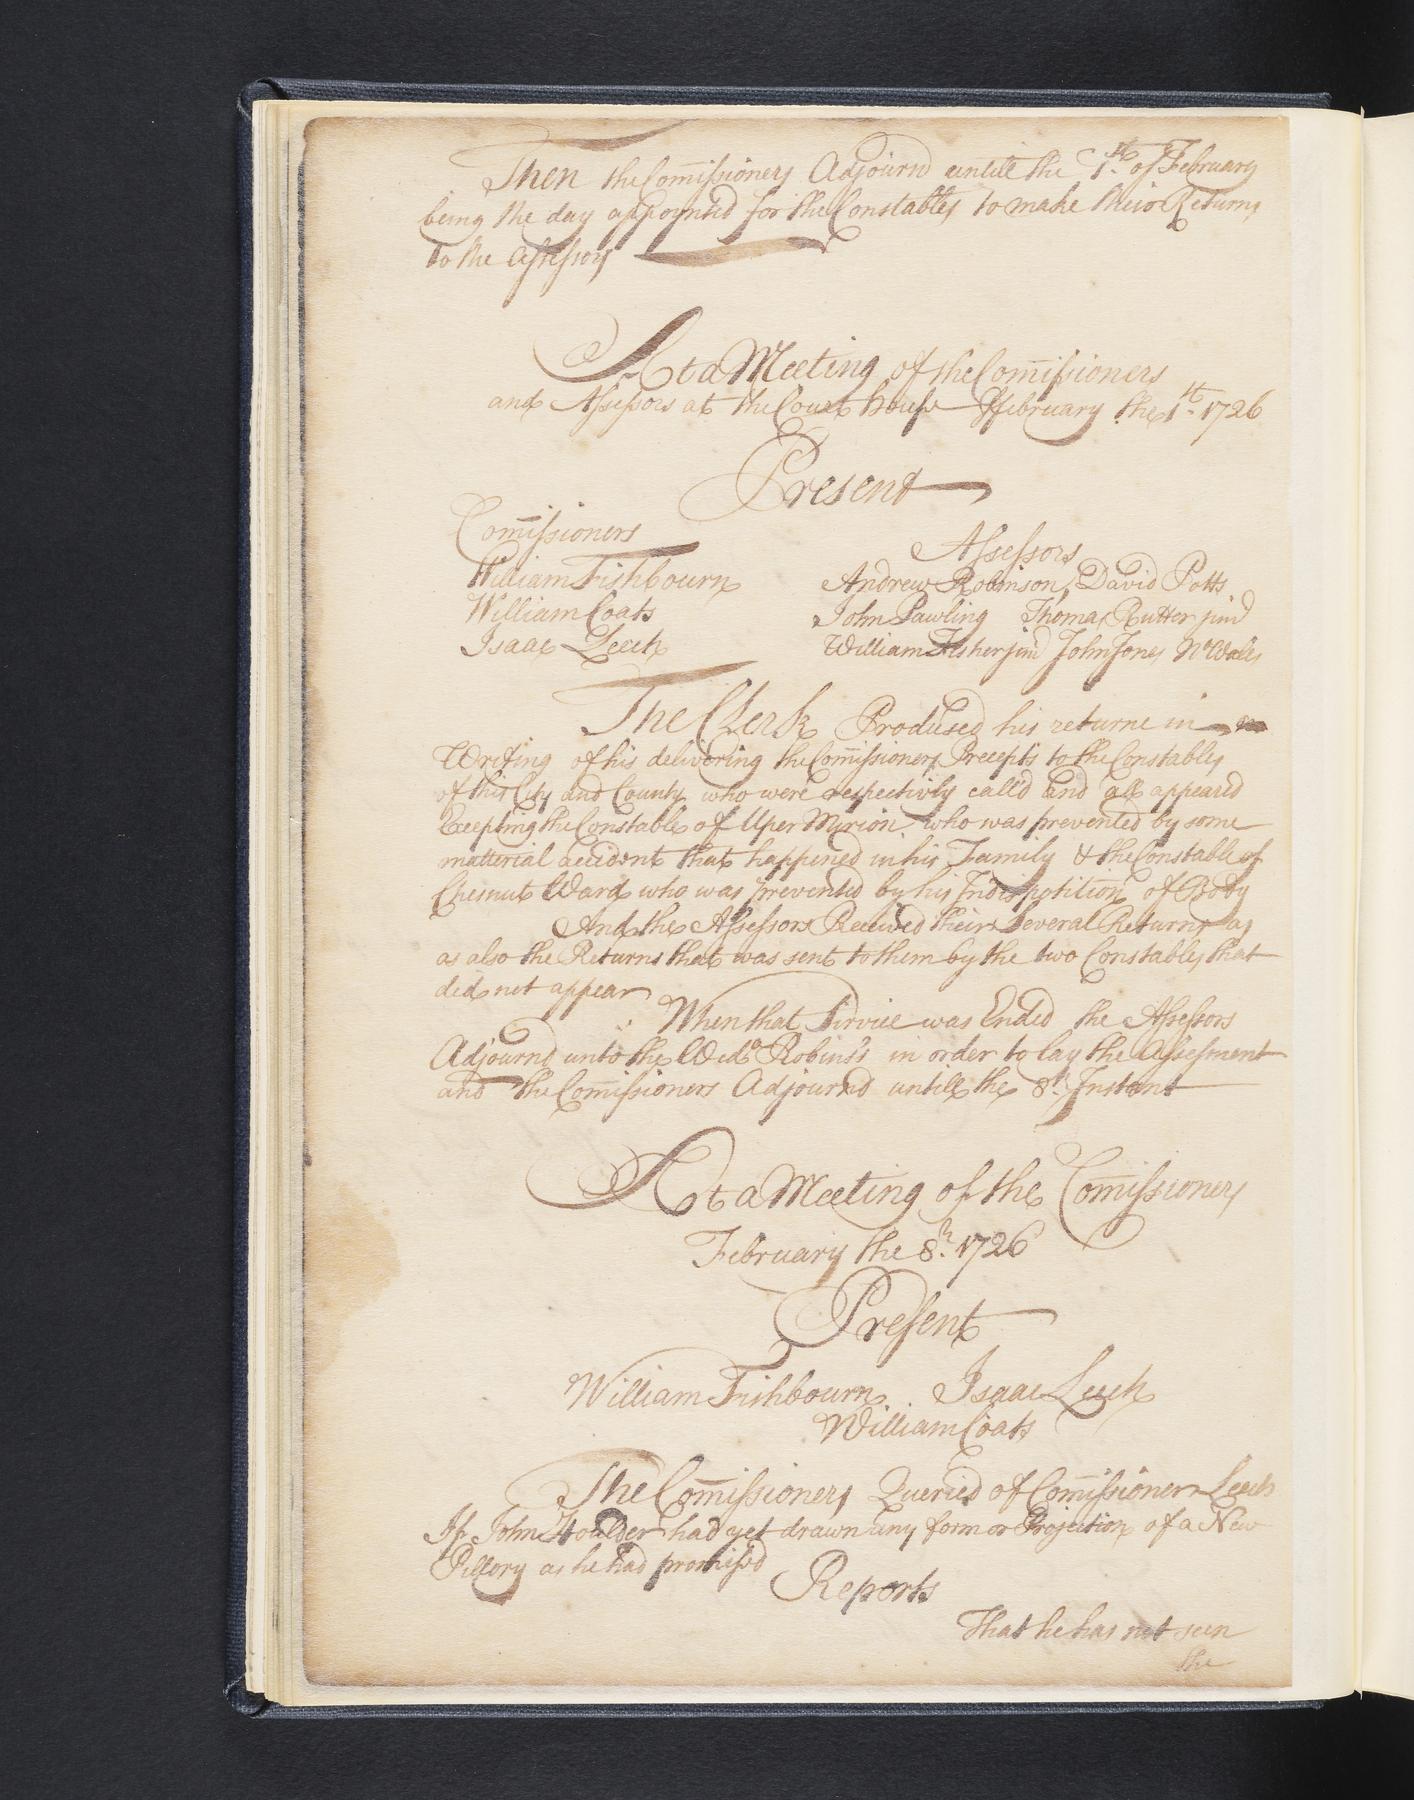 Then the Com̄issioners Adjournd untill the 1st. of February
being the day appoynted for the Constables to make their Returns
to the Assessors
At a Meeting of the Com̄issioners
and Assessors at the Court house February the 1st. 1726
Present
Com̄issioners
Assessors
William Fishbourn
Andrew Robinson, David Potts
William Coats
John Pawling Thomas Rutter junr
Isaac Leech
William Fisher junr John Jones No Wales
The Clerk Prodused his returne in
Writing of his delivering the Com̄issioners Precepts to the Constables
of this City and County who were respectivly call'd and all appeared
Excepting the Constable of Uper Myrion who was prevented by some
matterial accident that happened in his Family & the Constable of
Chesnut Ward who was prevented by his Indispotition of Body
And the Assessors Received their Several Returns as
as also the Returns that was sent to them by the two Constables that
did not appear
When that Service was Ended the Assessors
Adjournd unto the Wido Robins's in order to lay the Assessment
and the Com̄issioners Adjournd untill the 8th. Instant
At a Meeting of the Com̄issioners
February the 8th. 1726
Present
William Fishbourn Isaac Leech
William Coats
The Com̄issioners Queried of Com̄issioner Leech
If John Houlder had yet drawn any form or Projection of a New
Pillory as he had promised
Reports
That he has not seen
the